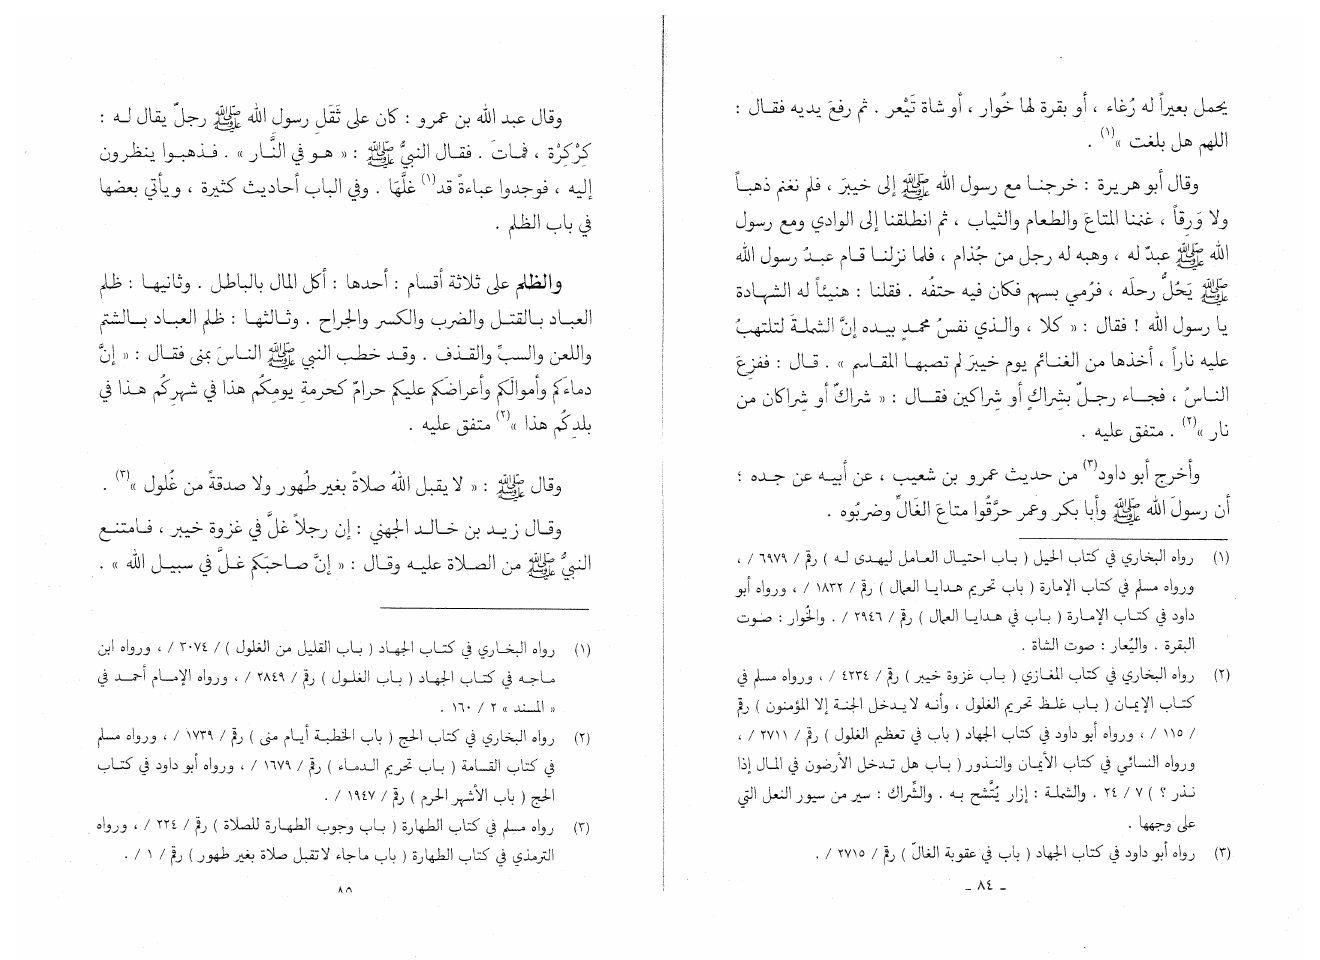 يحمل بعيراً له رُغاء ، أو بقرة لها خُوار ، أو شاة تَيْعر . ثم رفعَ يديه فقال :
اللهم هل بلغت »(١) .
وقال أبو هريرة : خرجنا مع رسول الله ﷺ إلى خيبرَ ، فلم نغنم ذهباً
ولا وَرِقاً ، غنمنا المتاعَ والطعام والثياب ، ثم انطلقنا إلى الوادي ومع رسول
الله ﷺ عبدٌ له ، وهبه له رجل من جُذام ، فلما نزلنا قام عبدُ رسول الله
ﷺ يَحُلُّ رحلَه ، فرُمي بسهم فكان فيه حتفُه . فقلنا : هنيئاً له الشهادة
يا رسول الله ! فقال : « كلا ، والذي نفسُ محمدٍ بيده إنَّ الشملةَ لتلتهبُ
عليه ناراً ، أخذها من الغنائم يوم خيبرَ لم تصبها المقاسم » . قال : ففزِعَ
الناسُ ، فجاء رجلٌ بشِراكٍ أو شِراكين فقال : « شراكٌ أو شراكان من
نار »(٢) . متفق عليه .
وأخرج أبو داود(٣) من حديث عمرو بن شعيب ، عن أبيه عن جده ؛
أن رسولَ الله ﷺ وأبا بكر وعمر حرَّقُوا متاعَ الغَالِّ وضربُوه .
(١) رواه البخاري في كتاب الحيل ( باب احتيال العامل ليهدى له ) رقم / ٦٩٧٩ / ،
ورواه مسلم في كتاب الإمارة ( باب تحريم هدايا العمال ) رقم / ١٨٣٢ / ، ورواه أبو
داود في كتاب الإمارة ( باب في هدايا العمال ) رقم / ٢٩٤٦ / . والخُوار : صوت
البقرة . واليُعار : صوت الشاة .
(٢) رواه البخاري في كتاب المغازي ( باب غزوة خيبر ) رقم / ٤٢٣٤ / ، ورواه مسلم في
كتاب الإيمان ( باب غلظ تحريم الغلول ، وأنه لا يدخل الجنة إلا المؤمنون ) رقم
/ ١١٥ / ، ورواه أبو داود في كتاب الجهاد ( باب في تعظيم الغلول ) رقم / ٢٧١١ / ،
ورواه النسائي في كتاب الأيمان والنذور ( باب هل تدخل الأرضون في المال إذا
نذر ؟ ) ٧ / ٢٤ . والشملة : إزار يُتَّشح به . والشِّراك : سير من سيور النعل التي
على وجهها .
(٣) رواه أبو داود في كتاب الجهاد ( باب في عقوبة الغالّ ) رقم / ٢٧١٥ / .
- ٨٤ -
وقال عبد الله بن عمرو : كان على ثَقَلِ رسول الله ﷺ رجلٌ يقال له :
كِرْكِرْة ، فماتَ . فقال النبيُّ ﷺ : « هو في النَّار » . فذهبوا ينظرون
إليه ، فوجدوا عباءةً قد(١) غلَّها . وفي الباب أحاديث كثيرة ، ويأتي بعضها
في باب الظلم .
والظلم على ثلاثة أقسام : أحدها : أكل المال بالباطل . وثانيها : ظلم
العباد بالقتل والضرب والكسر والجراح . وثالثها : ظلم العباد بالشتم
واللعن والسبِّ والقذف . وقد خطب النبي ﷺ الناسَ بمنى فقال : « إنَّ
دماءَكم وأموالَكم وأعراضَكم عليكم حرامٌ كحرمةِ يومِكُم هذا في شهرِكُم هذا في
بلدِكُم هذا »(٢) متفق عليه .
وقال ﷺ : « لا يقبل اللهُ صلاةً بغير طُهور ولا صدقةً من غُلول »(٣) .
وقال زيد بن خالد الجهني : إن رجلاً غلَّ في غزوة خيبر ، فامتنع
النبيُّ ﷺ من الصلاة عليه وقال : « إنَّ صاحبَكم غلَّ في سبيل الله » .
(١) رواه البخاري في كتاب الجهاد ( باب القليل من الغلول ) / ٣٠٧٤ / ، ورواه ابن
ماجه في كتاب الجهاد ( باب الغلول ) رقم / ٢٨٤٩ / ، ورواه الإمام أحمد في
« المسند » ٢ / ١٦٠ .
(٢) رواه البخاري في كتاب الحج ( باب الخطبة أيام منى ) رقم / ١٧٣٩ / ، ورواه مسلم
في كتاب القسامة ( باب تحريم الدماء ) رقم / ١٦٧٩ / ، ورواه أبو داود في كتاب
الحج ( باب الأشهر الحرم ) رقم / ١٩٤٧ / .
(٣) رواه مسلم في كتاب الطهارة ( باب وجوب الطهارة للصلاة ) رقم / ٢٢٤ / ، ورواه
الترمذي في كتاب الطهارة ( باب ما جاء لا تقبل صلاة بغير طهور ) رقم / ١ / .
٨٥